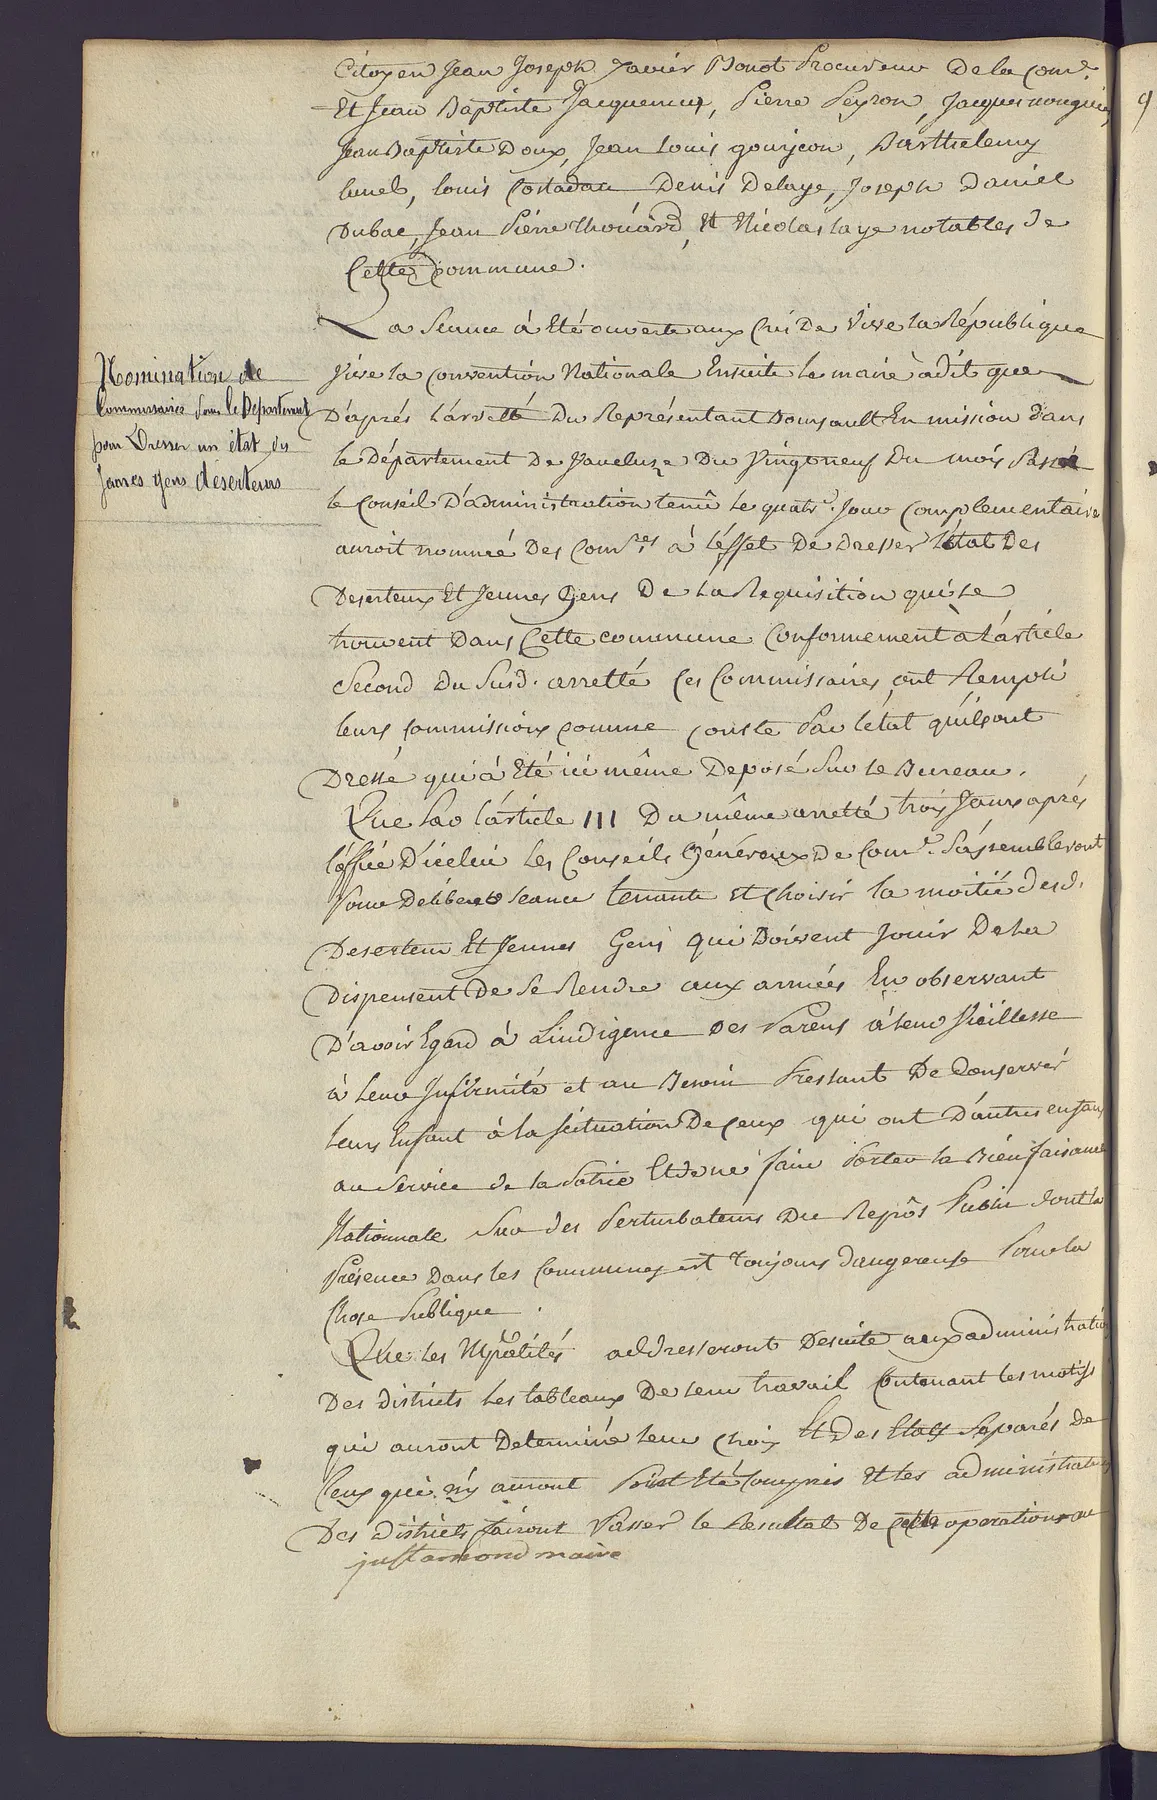 Citoyen Jean Joseph Xavier Bonot Procureur De la Com.e
Et Jean Baptiste Jacquemus, Pierre Peyron, Jacques nouguier
Jean Baptiste Doux, Jean Louis gourjeon, Barthelemy
lunel, louis Costadau Denis Delaye, Joseph Daniel
Dubac, Jean Piérre thoüard, Et Nicolas laye notables de
Cette Commune.
La Seance à Eté ouverte aux Cris De Vivve la République
Vive la Convention Nationale Ensuite le maire à dit que
D'aprés l'arretté Du Représentant Goupilleau En mission dans
le Département De Vaucluse Du Vingtneuf Du mois Passé
le Conseil D'administration tenû le quatr.e Jour Complementaire
auroit nommé Des Com.res à l'éffet De dresser l'état Des
Deserteurs Et Jeunes Gens De La Requisition qui se
trouvent Dans Cette commune Conformement à L'article
Second Du Susd. arretté Ces Commissaires ont Rempli
leurs Commissions comme conste Par l'état qu'ils ont
Dressé qui à Eté ici même Deposé Sur le Bureau.
Que Par l'article III Du même arretté trois Jours aprés
l'affiche D'icelui les Conseils Généraux De Com.e S'assembleront
Pour Deliberer seance tenante et Choisir la moitié desd.
Deserteur Et Jeunes Gens qui Doivent Jouir De La
Dispensent De Se Rendre aux armées En observant
D'avoir Egard à L'indigence Des Parens à leur Viéillesse
à leur Infirmité et au Besoin Pressant De Conserver
leurs Enfant à la Scituation De ceux qui ont D'autres enfans
au Service de la Patrie Et de ne faire Porter la Bienfaisance
Nationnale Sur des Perturbateurs Du Repôs Public dont la
Présence Dans les Communes est toujours dangereuse Pour la
Chose Publique.
Que les M̃palités addresseront Desuite aux administrations
Des districts Les tableaux De leur travail Contenant les motifs
qui auront Determiné leur choix Et Des Etats Separés de
Ceux qui n'y auront Point Eté Compris Et les administrateurs
Des Districts fairont Passer le Resultat De cette operation au
justamond maire
Nomination de
Commissaires Pour le Departement
pour Dresser un état des
Jeunes gens déserteurs
9